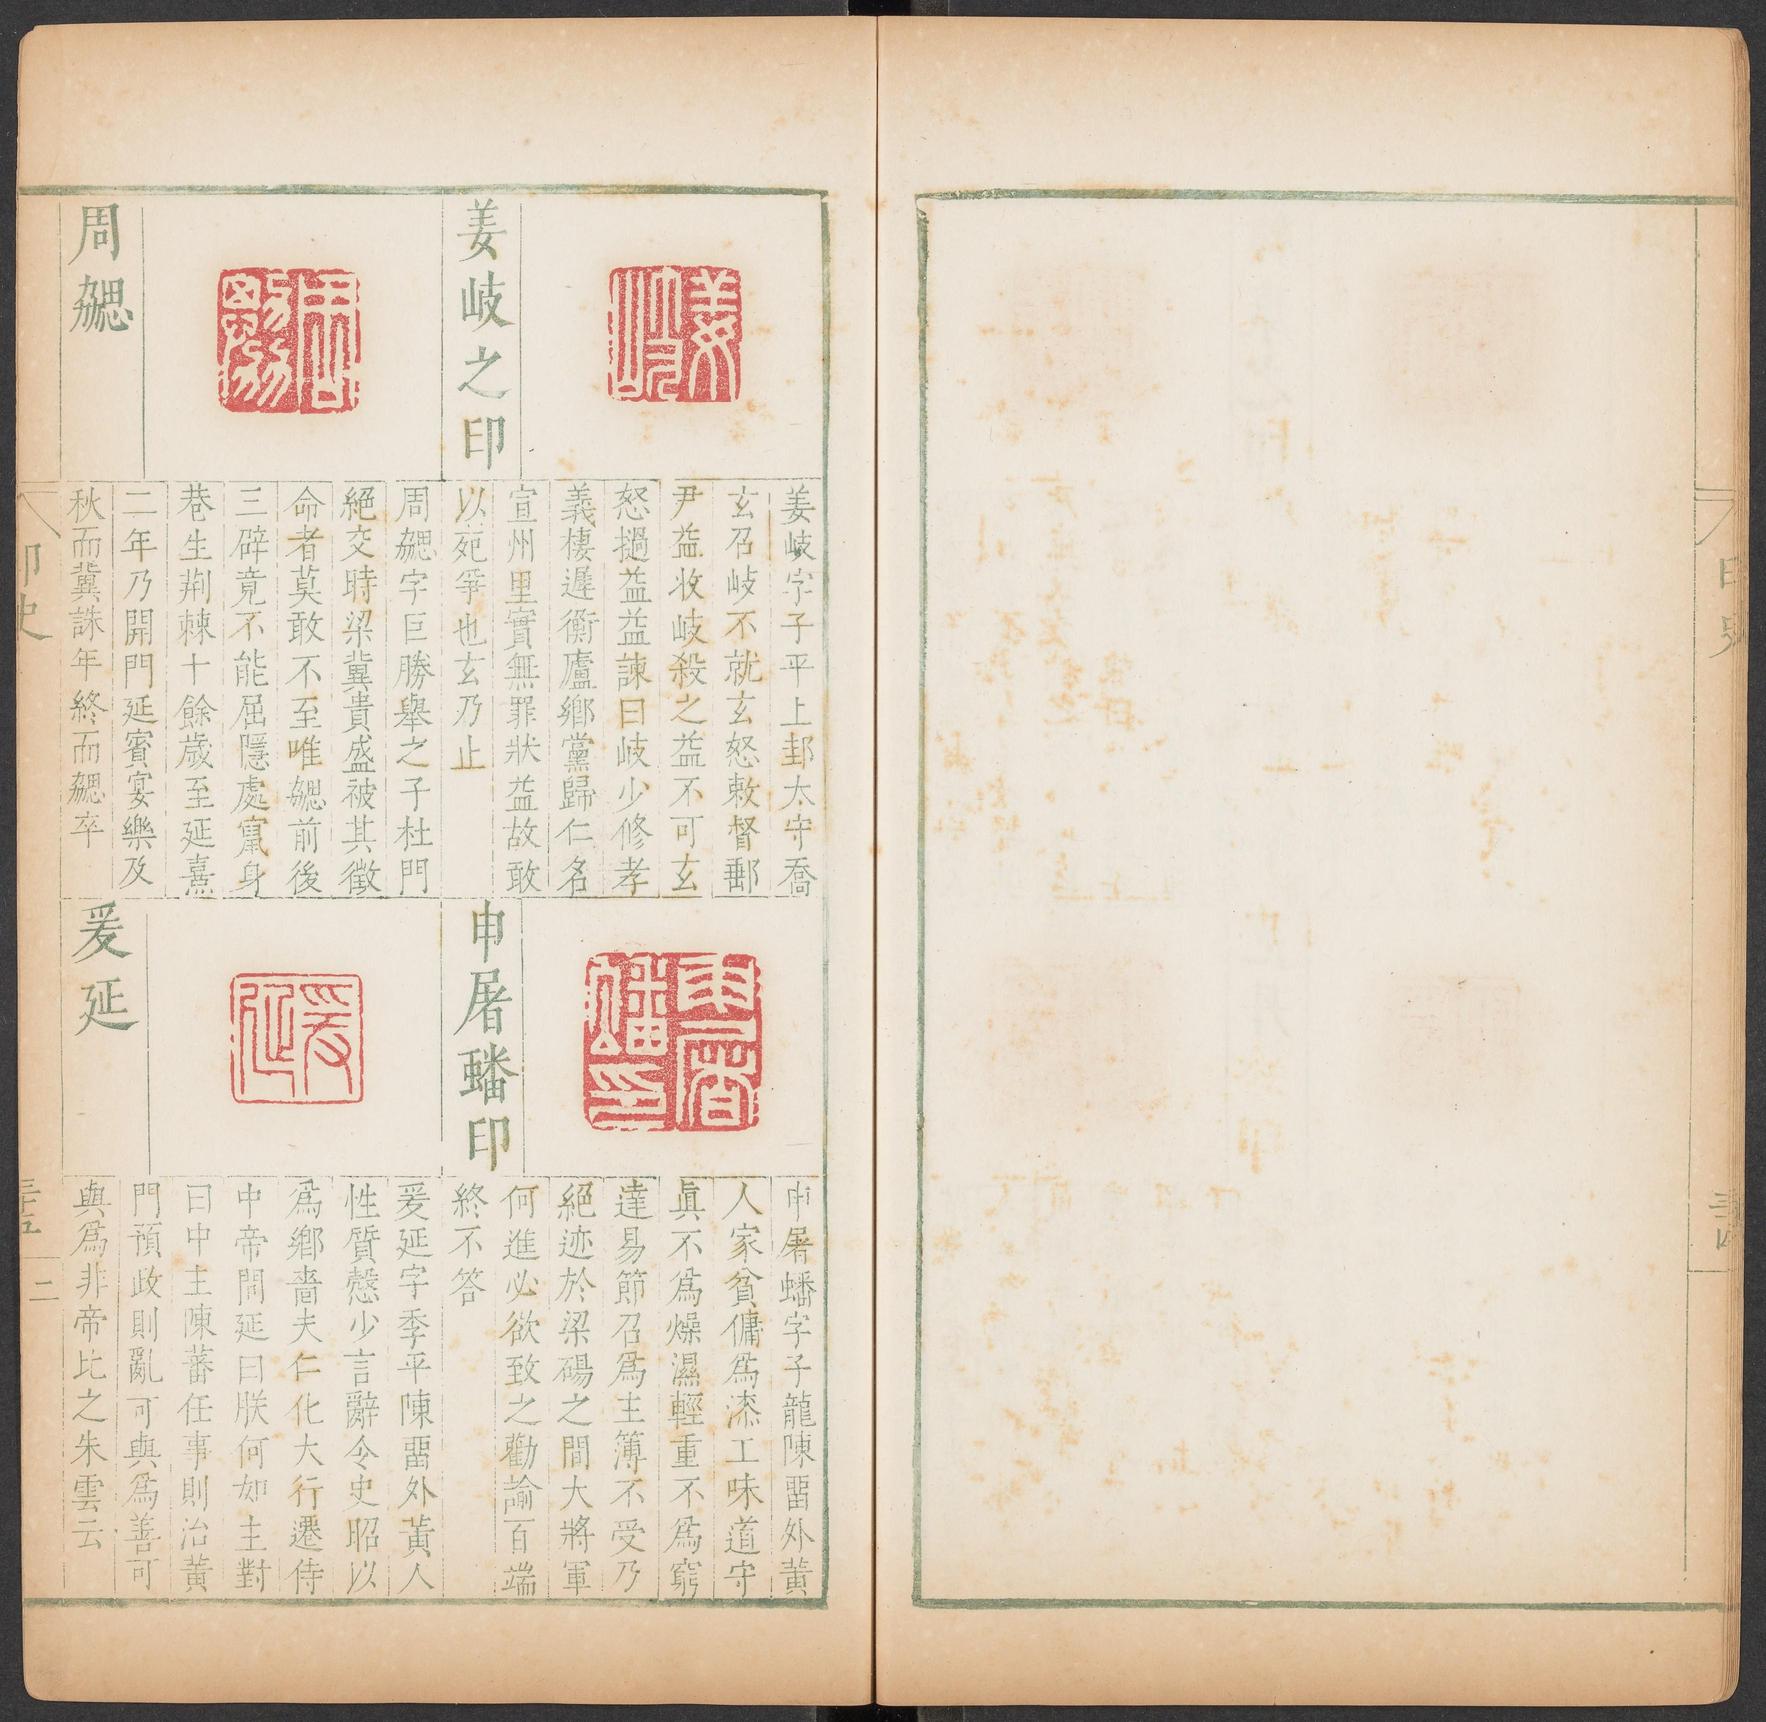 姜岐之印
姜岐字子平上邽太守喬
玄召岐不就玄怒敕督郵
尹益收岐殺之益不可玄
怒撾益益諫曰岐少修孝
義棲遲衡廬鄉黨歸仁名
宣州里實無罪狀益故敢
以死爭也玄乃止
周勰
周勰字巨勝舉之子杜門
絕交時梁冀貴盛被其徵
命者莫敢不至唯勰前後
三辟竟不能屈隱處竄身
巷生荆棘十餘歲至延熹
二年乃開門延賓宴樂及
秋而冀誅年終而勰卒
申屠蟠印
申屠蟠字子龍陳畱外黃
人家貧傭爲漆工味道守
眞不爲燥濕輕重不爲窮
達易節召爲主簿不受乃
絕迹於梁碭之間大將軍
何進必欲致之勸諭百端
終不答
爰延
爰延字季平陳畱外黃人
性質慤少言辭令史昭以
爲鄉嗇夫仁化大行遷侍
中帝問延曰朕何如主對
曰中主陳蕃任事則治黃
門預政則亂可與爲善可
與爲非帝比之朱雲云
印史
三十五
印史
三十四